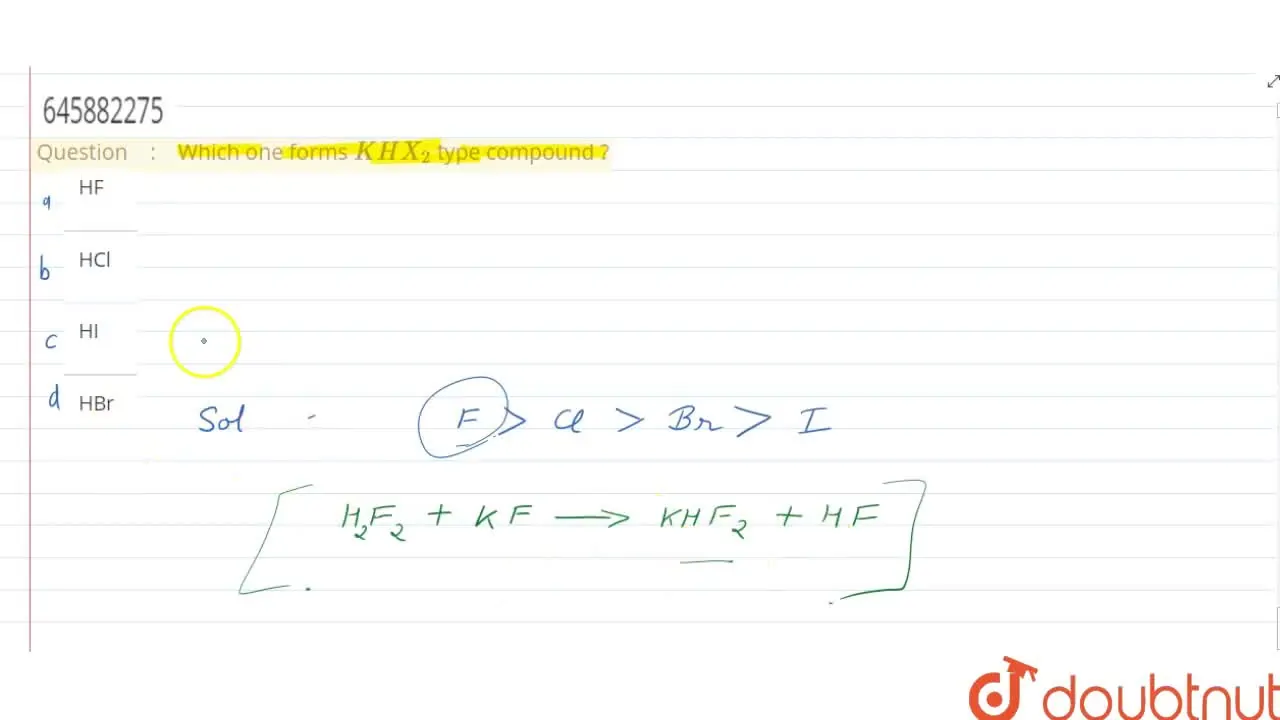 645882275
Question : Which one forms KHX₂ type compound ?
a HF
b HCl
c HI
d HBr
Sol :- F > Cl > Br > I
H₂F₂ + KF → KHF₂ + HF
doubtnut